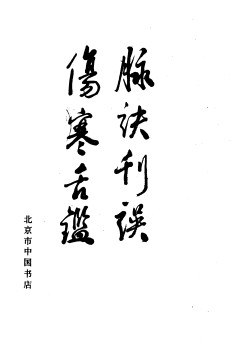 脉诀刊误
傷寒舌鑑
北京市中国书店